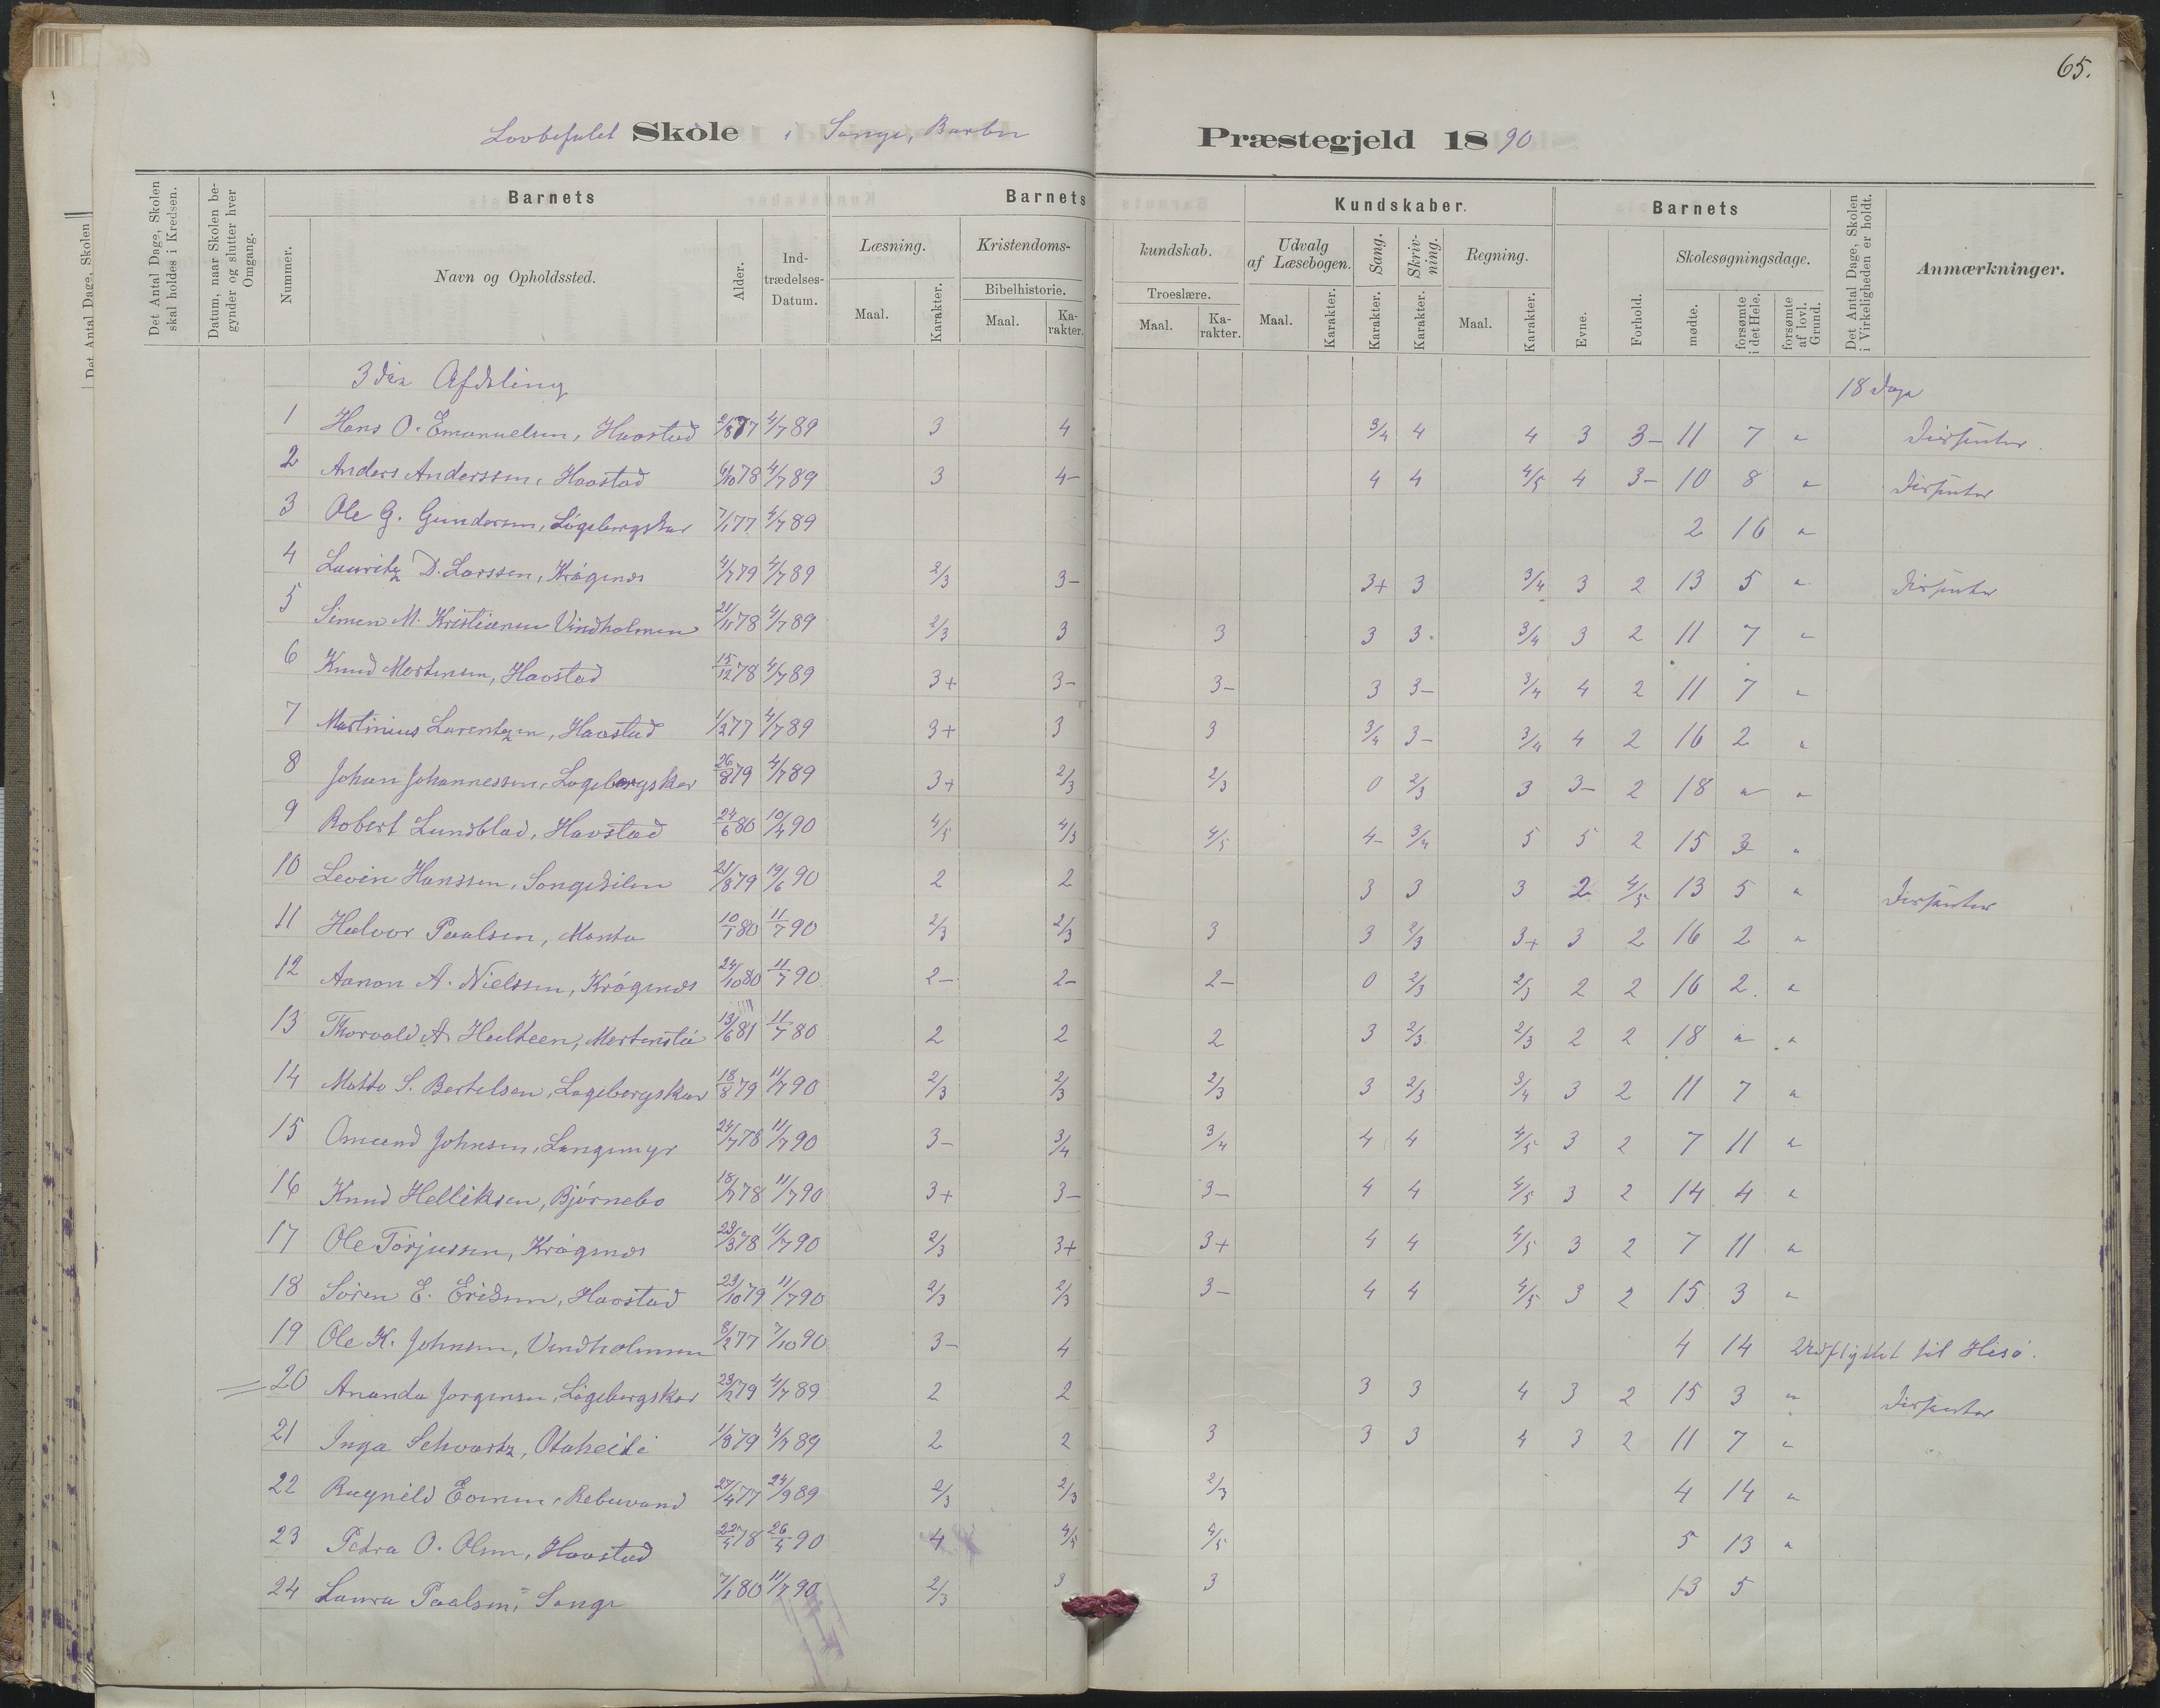 65.
Lovbefalet Skole i Songe, Barbu Præstegjeld 1890
Det Antal Dage, Skolen skal holdes i Kredsen.
Datum, naar Skolen begynder og slutter hver Omgang.
Barnets
Nummer.
Navn og Opholdssted.
Alder.
Indtrædelses-Datum.
Barnets Kundskaber.
Læsning. Maal. Karakter.
Kristendomskundskab.
Bibelhistorie. Maal. Karakter.
Troeslære. Maal. Karakter.
Udvalg af Læsebogen. Maal. Karakter.
Sang. Karakter.
Skrivning. Karakter.
Regning. Maal. Karakter.
Barnets
Evne.
Forhold.
Skolesøgningsdage.
mødte.
forsømte i det Hele.
forsømte af lovl. Grund.
Det Antal Dage, Skolen i Virkeligheden er holdt.
Anmærkninger.
3die Afdeling 18 Dage
1 Hans O. Emanuelsen, Havstad 2/8 77 4/7 89 3 4 3/4 4 4 3 3- 11 7 " Dissenter
2 Anders Anderssen, Havstad 6/10 78 4/7 89 3 4- 4 4 4/5 4 3- 10 8 " Dissenter
3 Ole G. Gundersen, Lögebergskar 7/1 77 4/7 89 2 16 "
4 Lauritz D. Larssen, Krögenes 4/7 79 4/7 89 2/3 3- 3+ 3 3/4 3 2 13 5 " Dissenter
5 Simen M. Kristiansen Vindholmen 21/11 78 4/7 89 2/3 3 3 3 3 3/4 3 2 11 7 "
6 Knud Mortensen, Havstad 15/12 78 4/7 89 3+ 3- 3- 3 3- 3/4 4 2 11 7 "
7 Martinius Larentzen, Havstad 1/2 77 4/7 89 3+ 3 3 3/4 3- 3/4 4 2 16 2 "
8 Johan Johannessen, Lögebergskar 26/8 79 4/7 89 3+ 2/3 2/3 0 2/3 3 3- 2 18 " "
9 Robert Lundblad, Havstad 24/6 80 10/4 90 4/5 4/5 4/5 4- 3/4 5 5 2 15 3 "
10 Levin Hanssen, Songekilen 21/8 79 19/6 90 2 2 3 3 3 2 4/5 13 5 " Dissenter
11 Halvor Paalsen, Manta 10/1 80 11/7 90 2/3 2/3 3 3 2/3 3+ 3 2 16 2 "
12 Aanon A. Nielssen, Krögenes 24/10 80 11/7 90 2- 2- 2- 0 2/3 2/3 2 2 16 2 "
13 Thorvald A. Hulteen, Mortenslie 13/6 81 11/7 80 2 2 2 3 2/3 2/3 2 2 18 " "
14 Motto S. Bertelsen, Lagebergskar 18/8 79 11/7 90 2/3 2/3 2/3 3 2/3 3/4 3 2 11 7 "
15 Omund Johnsen, Langemyr 24/7 78 11/7 90 3- 3/4 3/4 4 4 4/5 3 2 7 11 "
16 Knud Helliksen, Bjørnebo 18/7 78 11/7 90 3+ 3- 3- 4 4 4/5 3 2 14 4 "
17 Ole Torjussen, Krögenes 29/3 78 11/7 90 2/3 3+ 3+ 4 4 4/5 3 2 7 11 "
18 Sören E. Eriksen, Havstad 29/10 79 11/7 90 2/3 2/3 3- 4 4 4/5 3 2 15 3 "
19 Ole K. Johnsen, Vindholmen 8/2 77 7/10 90 3- 4 4 14 Udflyttet til Hisö.
20 Ananda Jorgensen, Lögebergskar 23/2 79 4/7 89 2 2 3 3 4 3 2 15 3 " Dissenter
21 Inga Schvartz, Otaheiti 1/8 79 4/7 89 2 2 3 3 3 4 3 2 11 7 "
22 Ragnild Rebuvand 27/4 77 24/9 89 2/3 2/3 2/3 4 14 "
23 Petra O. Olsen, Havstad 22/4 78 26/4 90 4 4/5 4/5 5 13 "
24 Laura Paalsen, Songe 7/1 80 11/7 90 2/3 3 3 13 5
Det Antal Dage, Skolen